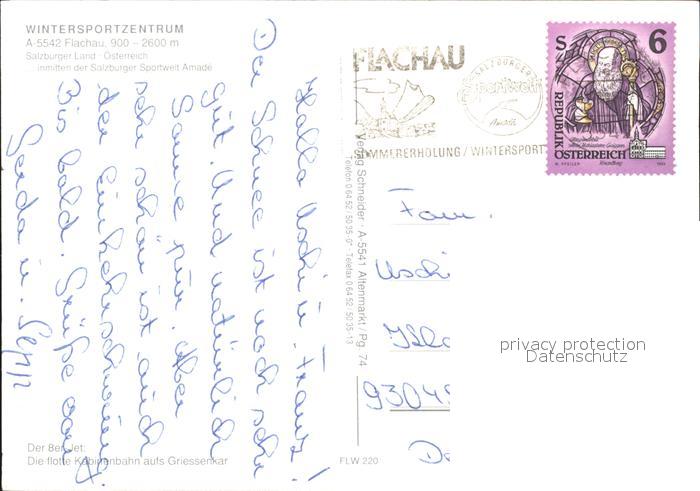 WINTERSPORTZENTRUM
A-5542 Flachau, 900 – 2600 m
Salzburger Land · Österreich
inmitten der Salzburger Sportwelt Amadé
Hallo Uschi u. Franz!
Der Schnee ist noch sehr
gut. Und natürlich
Sonne pur. Aber
sehr schön ist auch
der Einkehrschwung.
Bis bald. Grüße von
Gerda u. Sepp
Der 8er Jet:
Die flotte Kabinenbahn aufs Griessenkar
FLW 220
Verlag Schneider · A-5541 Altenmarkt / Pg. 74
Telefon 0 64 52 / 50 35-0 · Telefax 0 64 52 / 50 35-13
FLACHAU
SALZBURGER
Sportwelt
Amadé
SOMMERERHOLUNG / WINTERSPORT
S 6
REPUBLIK
ÖSTERREICH
Fam.
Uschi
93049
privacy protection
Datenschutz